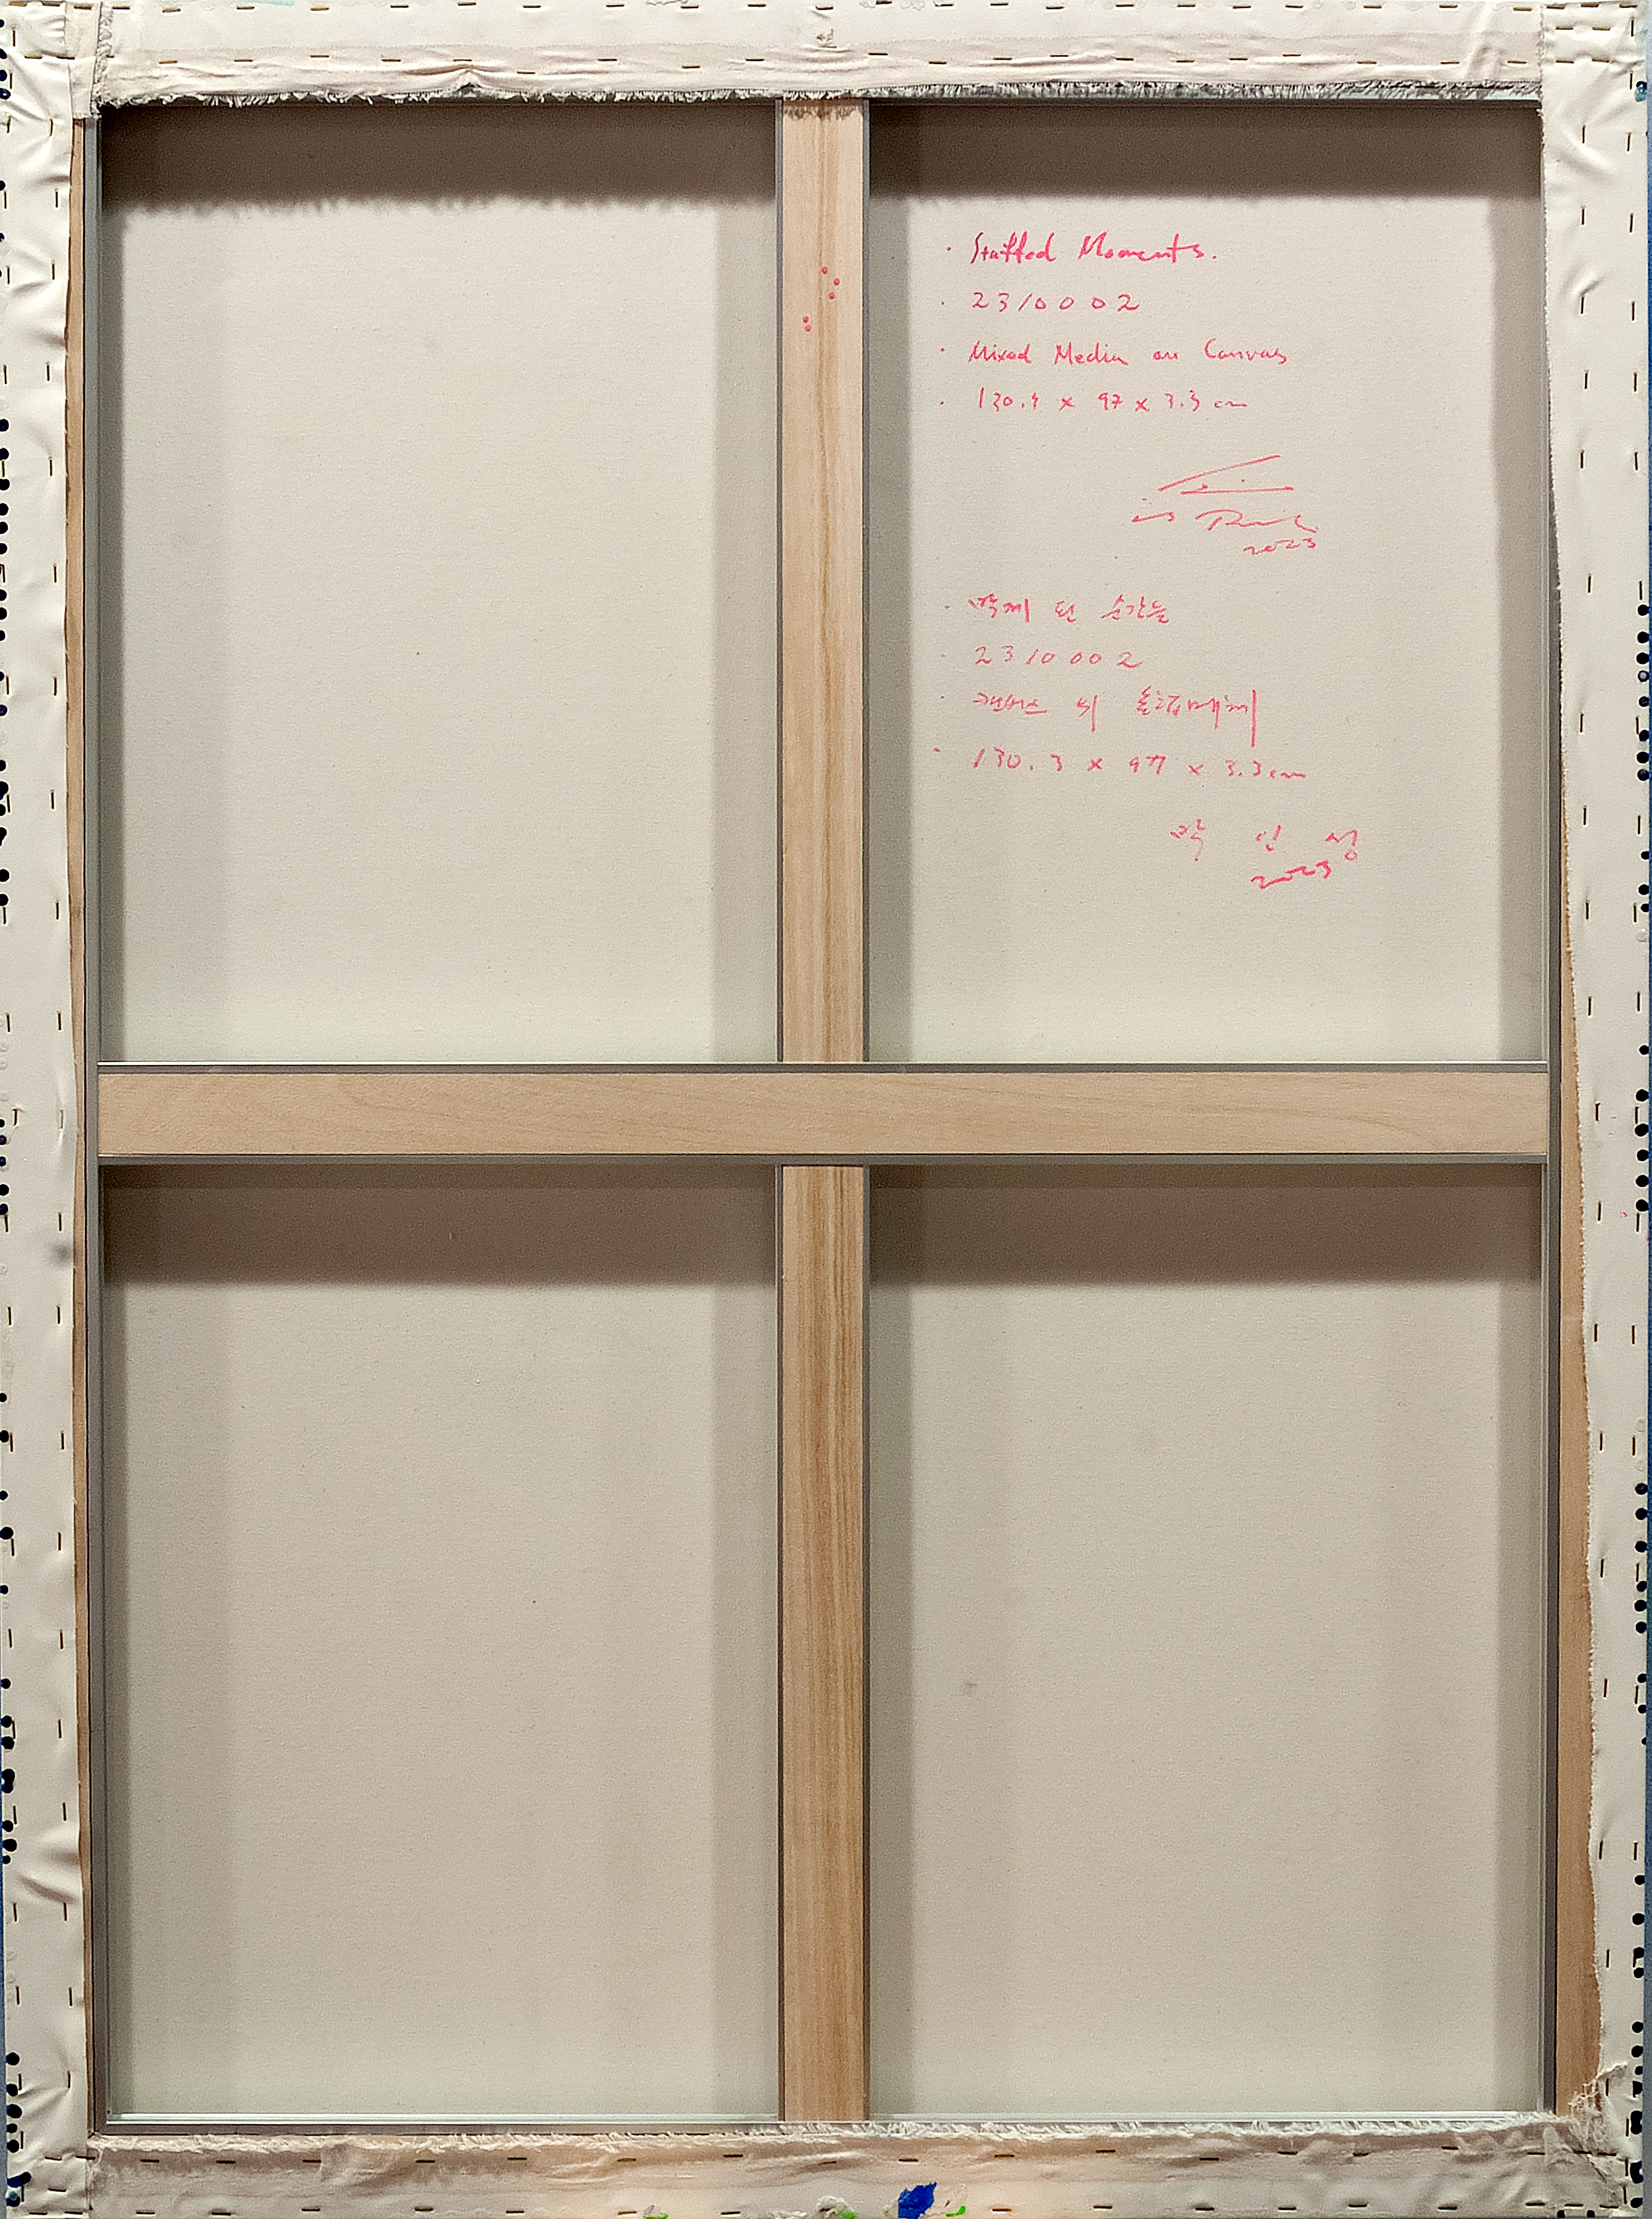 · Stuffed Moments.
· 2310002
· Mixed Media on Canvas
· 130.3 x 97 x 3.3 cm
2023
· 박제 된 순간들
· 2310002
· 캔버스 위 혼합매체
· 130.3 x 97 x 3.3cm
박 인 성
2023